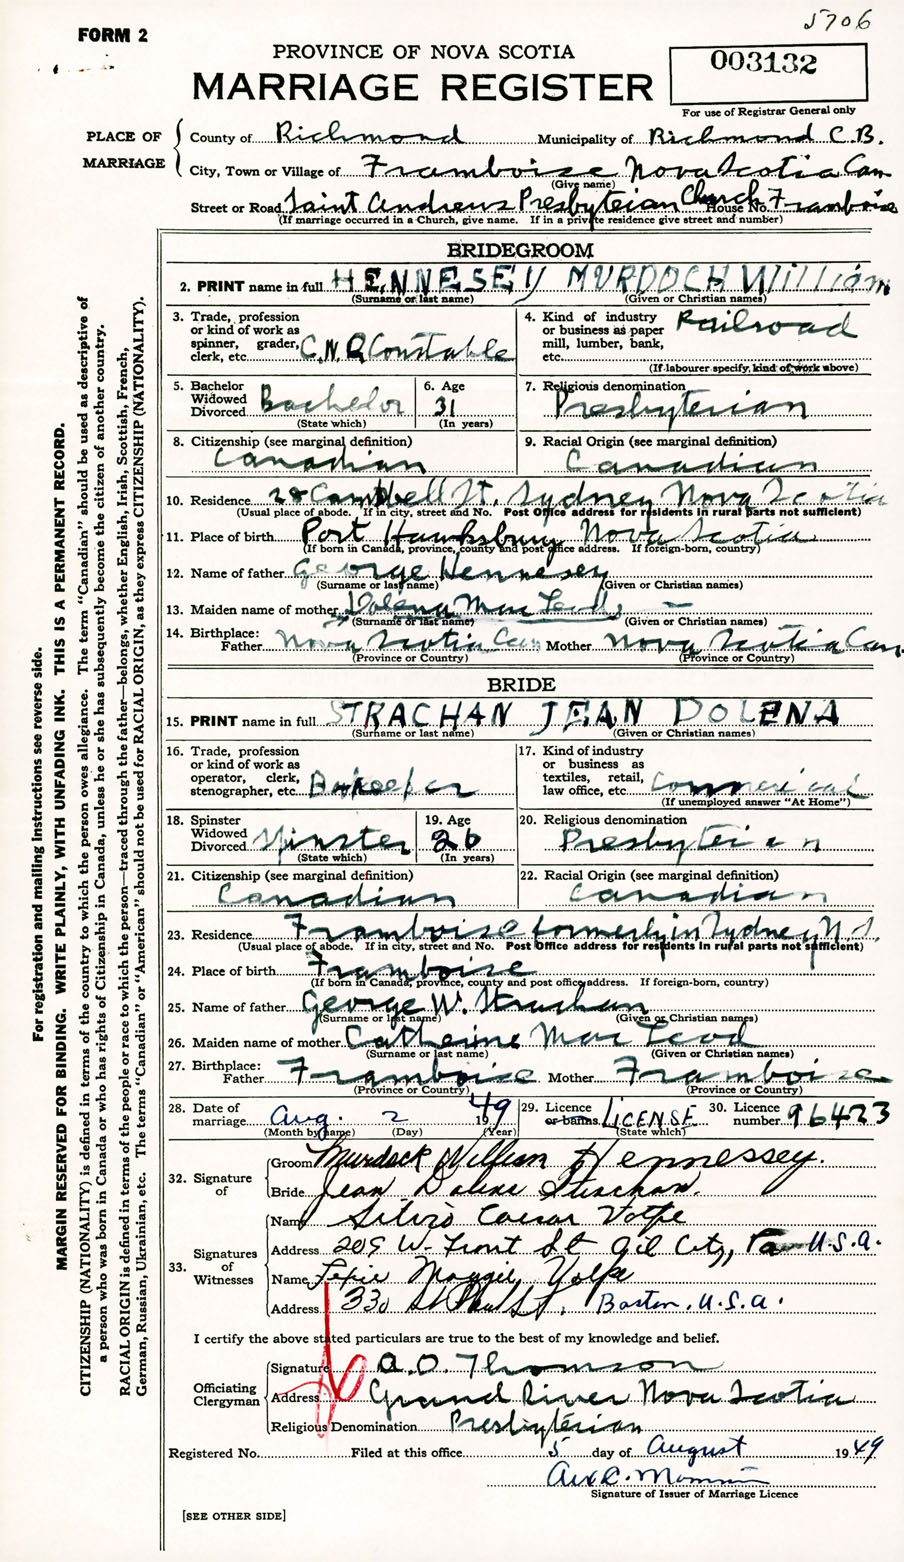 5706
FORM 2
PROVINCE OF NOVA SCOTIA
MARRIAGE REGISTER
003132
For use of Registrar General only
PLACE OF MARRIAGE
County of Richmond Municipality of Richmond C.B.
City, Town or Village of Framboise Nova Scotia Can
(Give name)
Street or Road Saint Andrews Presbyterian Church House No. Framboise
(If marriage occurred in a Church, give name. If in a private residence give street and number)
BRIDEGROOM
2. PRINT name in full HENNESEY MURDOCH William
(Surname or last name) (Given or Christian names)
3. Trade, profession or kind of work as spinner, grader, clerk, etc. C.N.R Constable
4. Kind of industry or business as paper mill, lumber, bank, etc. Railroad
(If labourer specify, kind of work above)
5. Bachelor Widowed Divorced Bachelor
(State which)
6. Age 31
(In years)
7. Religious denomination Presbyterian
8. Citizenship (see marginal definition) Canadian
9. Racial Origin (see marginal definition) Canadian
10. Residence 28 Campbell St. Sydney Nova Scotia
(Usual place of abode. If in city, street and No. Post Office address for residents in rural parts not sufficient)
11. Place of birth Port Hawksbury Nova Scotia
(If born in Canada, province, county and post office address. If foreign-born, country)
12. Name of father George Hennesey
(Surname or last name) (Given or Christian names)
13. Maiden name of mother Dolena Mac Leod
(Surname or last name) (Given or Christian names)
14. Birthplace: Father Nova Scotia Can Mother Nova Scotia Can
(Province or Country) (Province or Country)
BRIDE
15. PRINT name in full STRACHAN JEAN DOLENA
(Surname or last name) (Given or Christian names)
16. Trade, profession or kind of work as operator, clerk, stenographer, etc. Bookeeper
17. Kind of industry or business as textiles, retail, law office, etc. Commerical
(If unemployed answer "At Home")
18. Spinster Widowed Divorced Spinster
(State which)
19. Age 26
(In years)
20. Religious denomination Presbyterian
21. Citizenship (see marginal definition) Canadian
22. Racial Origin (see marginal definition) Canadian
23. Residence Framboise formerly in Sydney N.S.
(Usual place of abode. If in city, street and No. Post Office address for residents in rural parts not sufficient)
24. Place of birth Framboise
(If born in Canada, province, county and post office address. If foreign-born, country)
25. Name of father George W. Strachan
(Surname or last name) (Given or Christian names)
26. Maiden name of mother Catherine Mac Leod
(Surname or last name) (Given or Christian names)
27. Birthplace: Father Framboise Mother Framboise
(Province or Country) (Province or Country)
28. Date of marriage Aug. 2 1949
(Month by name) (Day) (Year)
29. Licence or banns LICENSE
(State which)
30. Licence number 96423
32. Signature of
Groom Murdock William Hennessey.
Bride Jean Dolena Strachan.
33. Signatures of Witnesses
Name Silvio Caesar Volpe
Address 209 W. Front St Oil City, Pa U.S.A.
Name Lexie Maggie Volpe
Address 330 St Paul St, Boston, U.S.A.
I certify the above stated particulars are true to the best of my knowledge and belief.
Officiating Clergyman
Signature A.O. Thomson
Address Grand River Nova Scotia
Religious Denomination Presbyterian
Registered No. Filed at this office 5 day of August 1949
Signature of Issuer of Marriage Licence
[SEE OTHER SIDE]
For registration and mailing instructions see reverse side.
MARGIN RESERVED FOR BINDING. WRITE PLAINLY, WITH UNFADING INK. THIS IS A PERMANENT RECORD.
CITIZENSHIP (NATIONALITY) is defined in terms of the country to which the person owes allegiance. The term "Canadian" should be used as descriptive of
a person who was born in Canada or who has rights of Citizenship in Canada, unless he or she has subsequently become the citizen of another country.
RACIAL ORIGIN is defined in terms of the people or race to which the person—traced through the father—belongs, whether English, Irish, Scottish, French,
German, Russian, Ukrainian, etc. The terms "Canadian" or "American" should not be used for RACIAL ORIGIN, as they express CITIZENSHIP (NATIONALITY).